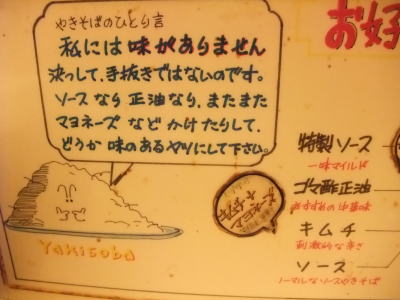 やきそばのひとり言
私には味がありません
決っして、手抜きではないのです。
ソースなら正油なり、またまた
マヨネーズなどかけたりして、
どうか味のあるヤツにして下さい。
Yakisoba
お好
特製ソース
一味マイルド
ゴマ酢正油
おすすめの中華味
キムチ
刺激的な辛さ
ソース
ノーマルなソースやきそば